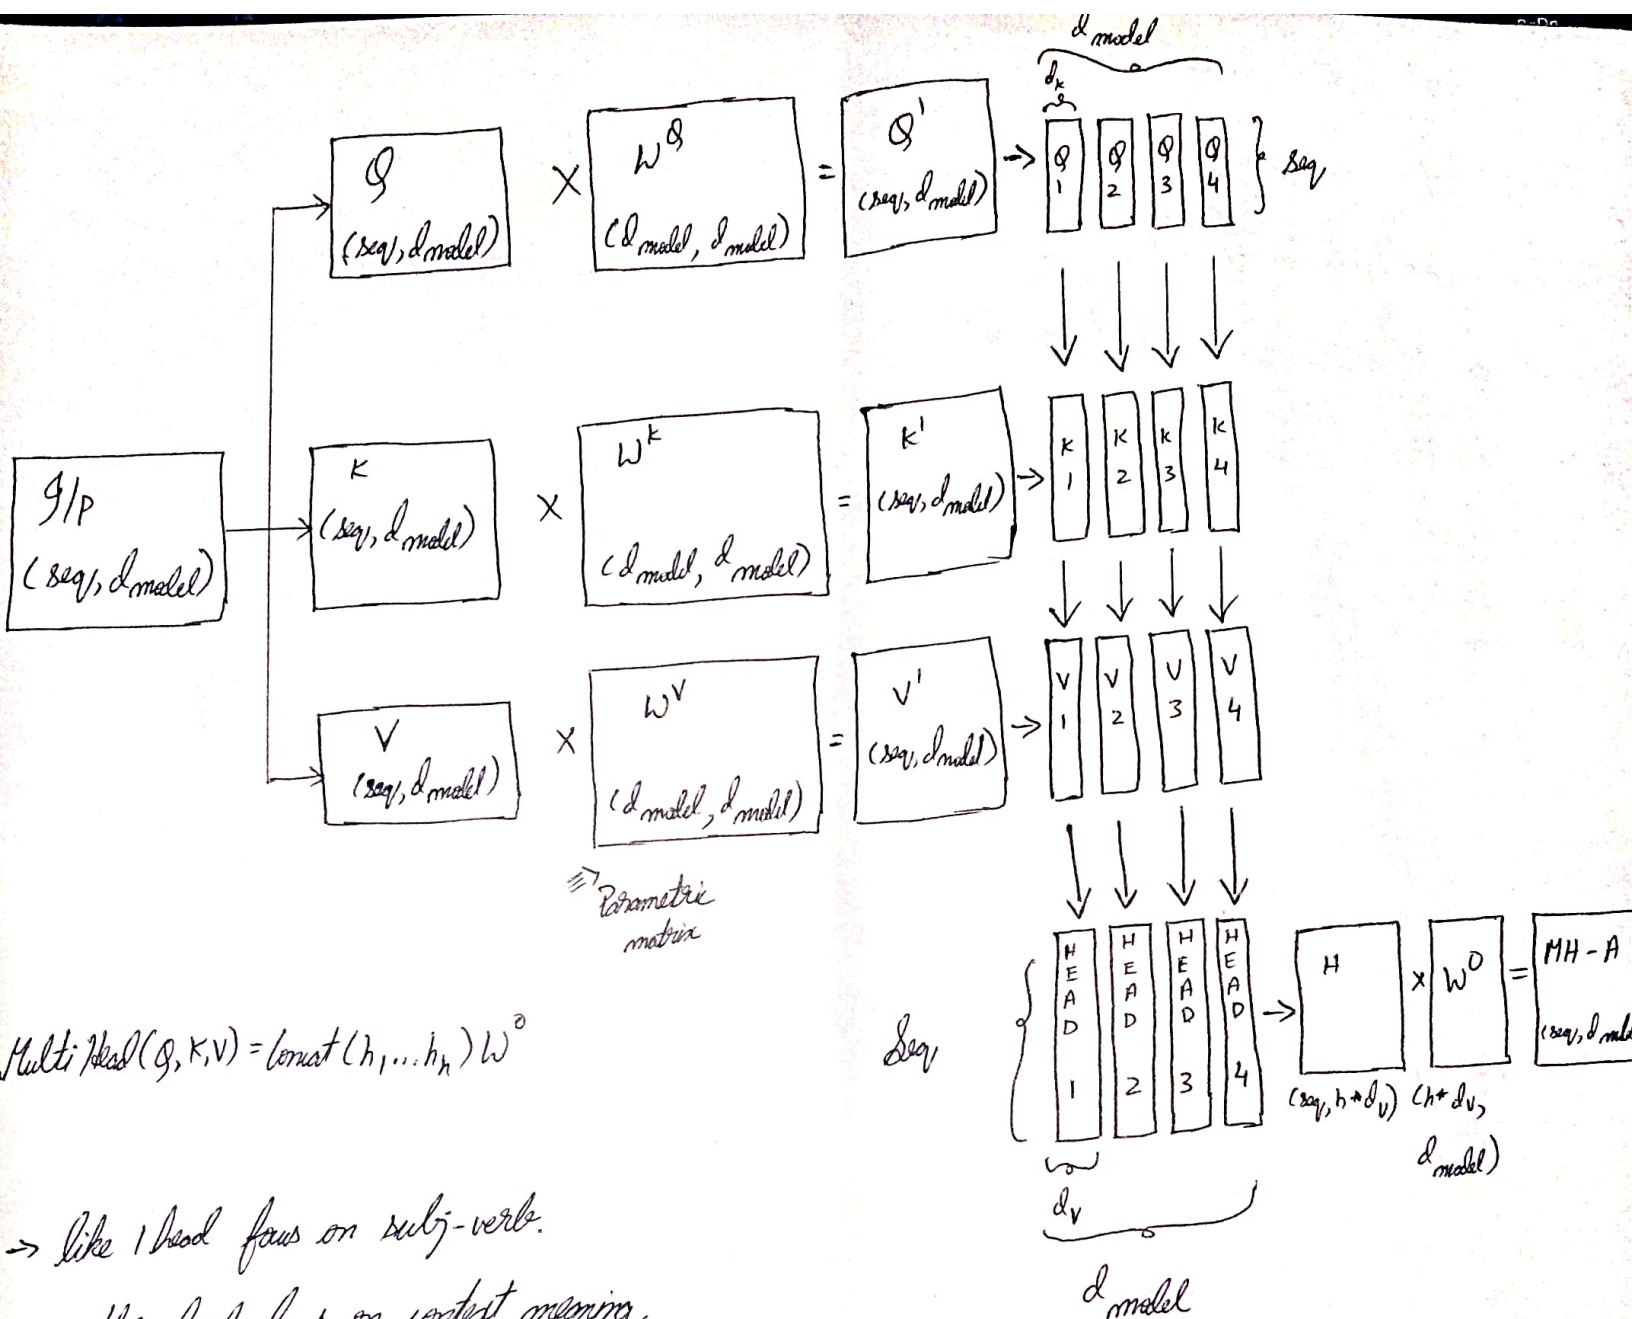 d model
dk
Q
(seq, d model)
×
W^Q
(d model, d model)
=
Q'
(seq, d model)
→
Q 1
Q 2
Q 3
Q 4
seq
I/P
(seq, d model)
K
(seq, d model)
×
W^K
(d model, d model)
=
K'
(seq, d model)
→
K 1
K 2
K 3
K 4
V
(seq, d model)
×
W^V
(d model, d model)
=
V'
(seq, d model)
→
V 1
V 2
V 3
V 4
⇒ Parametric
matrix
Seq
HEAD 1
HEAD 2
HEAD 3
HEAD 4
→
H
(seq, h * dv)
×
W^O
(h * dv,
d model)
=
MH - A
(seq, d model
dv
d model
MultiHead(Q, K, V) = Concat(h1, ... hn) W^O
→ like 1 head focus on subj-verb.
on context meaning.